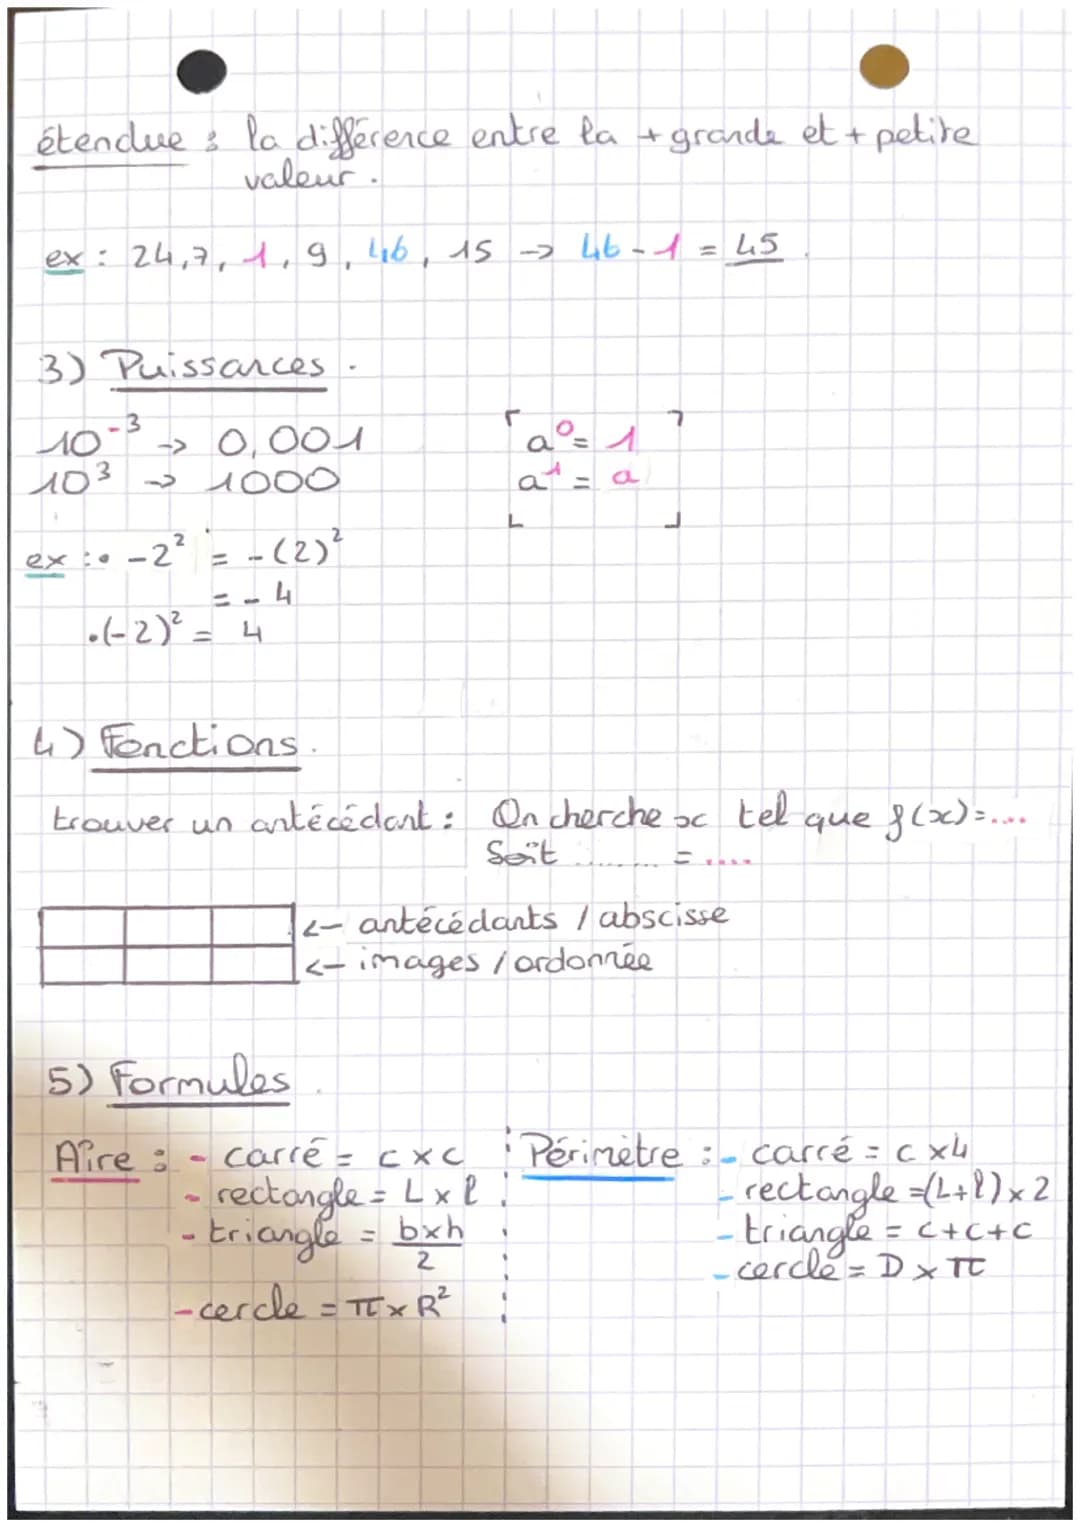 étendue : la différence entre la + grande et + petite
valeur.
ex : 24,7, 1, 9, 46, 15 -> 46 - 1 = 45
3) Puissances.
10⁻³ -> 0,001
10³ -> 1000
a⁰ = 1
a¹ = a
ex : • -2² = -(2)²
= - 4
• (-2)² = 4
4) Fonctions.
trouver un antécédant : On cherche x tel que f(x)=....
Soit ........ = ....
<- antécédants / abscisse
<- images / ordonnée
5) Formules
Aire : - carré = c x c
- rectangle = L x l
- triangle = b x h / 2
- cercle = π x R²
Périmètre : - carré = c x 4
- rectangle = (L+l) x 2
- triangle = c+c+c
- cercle = D x π